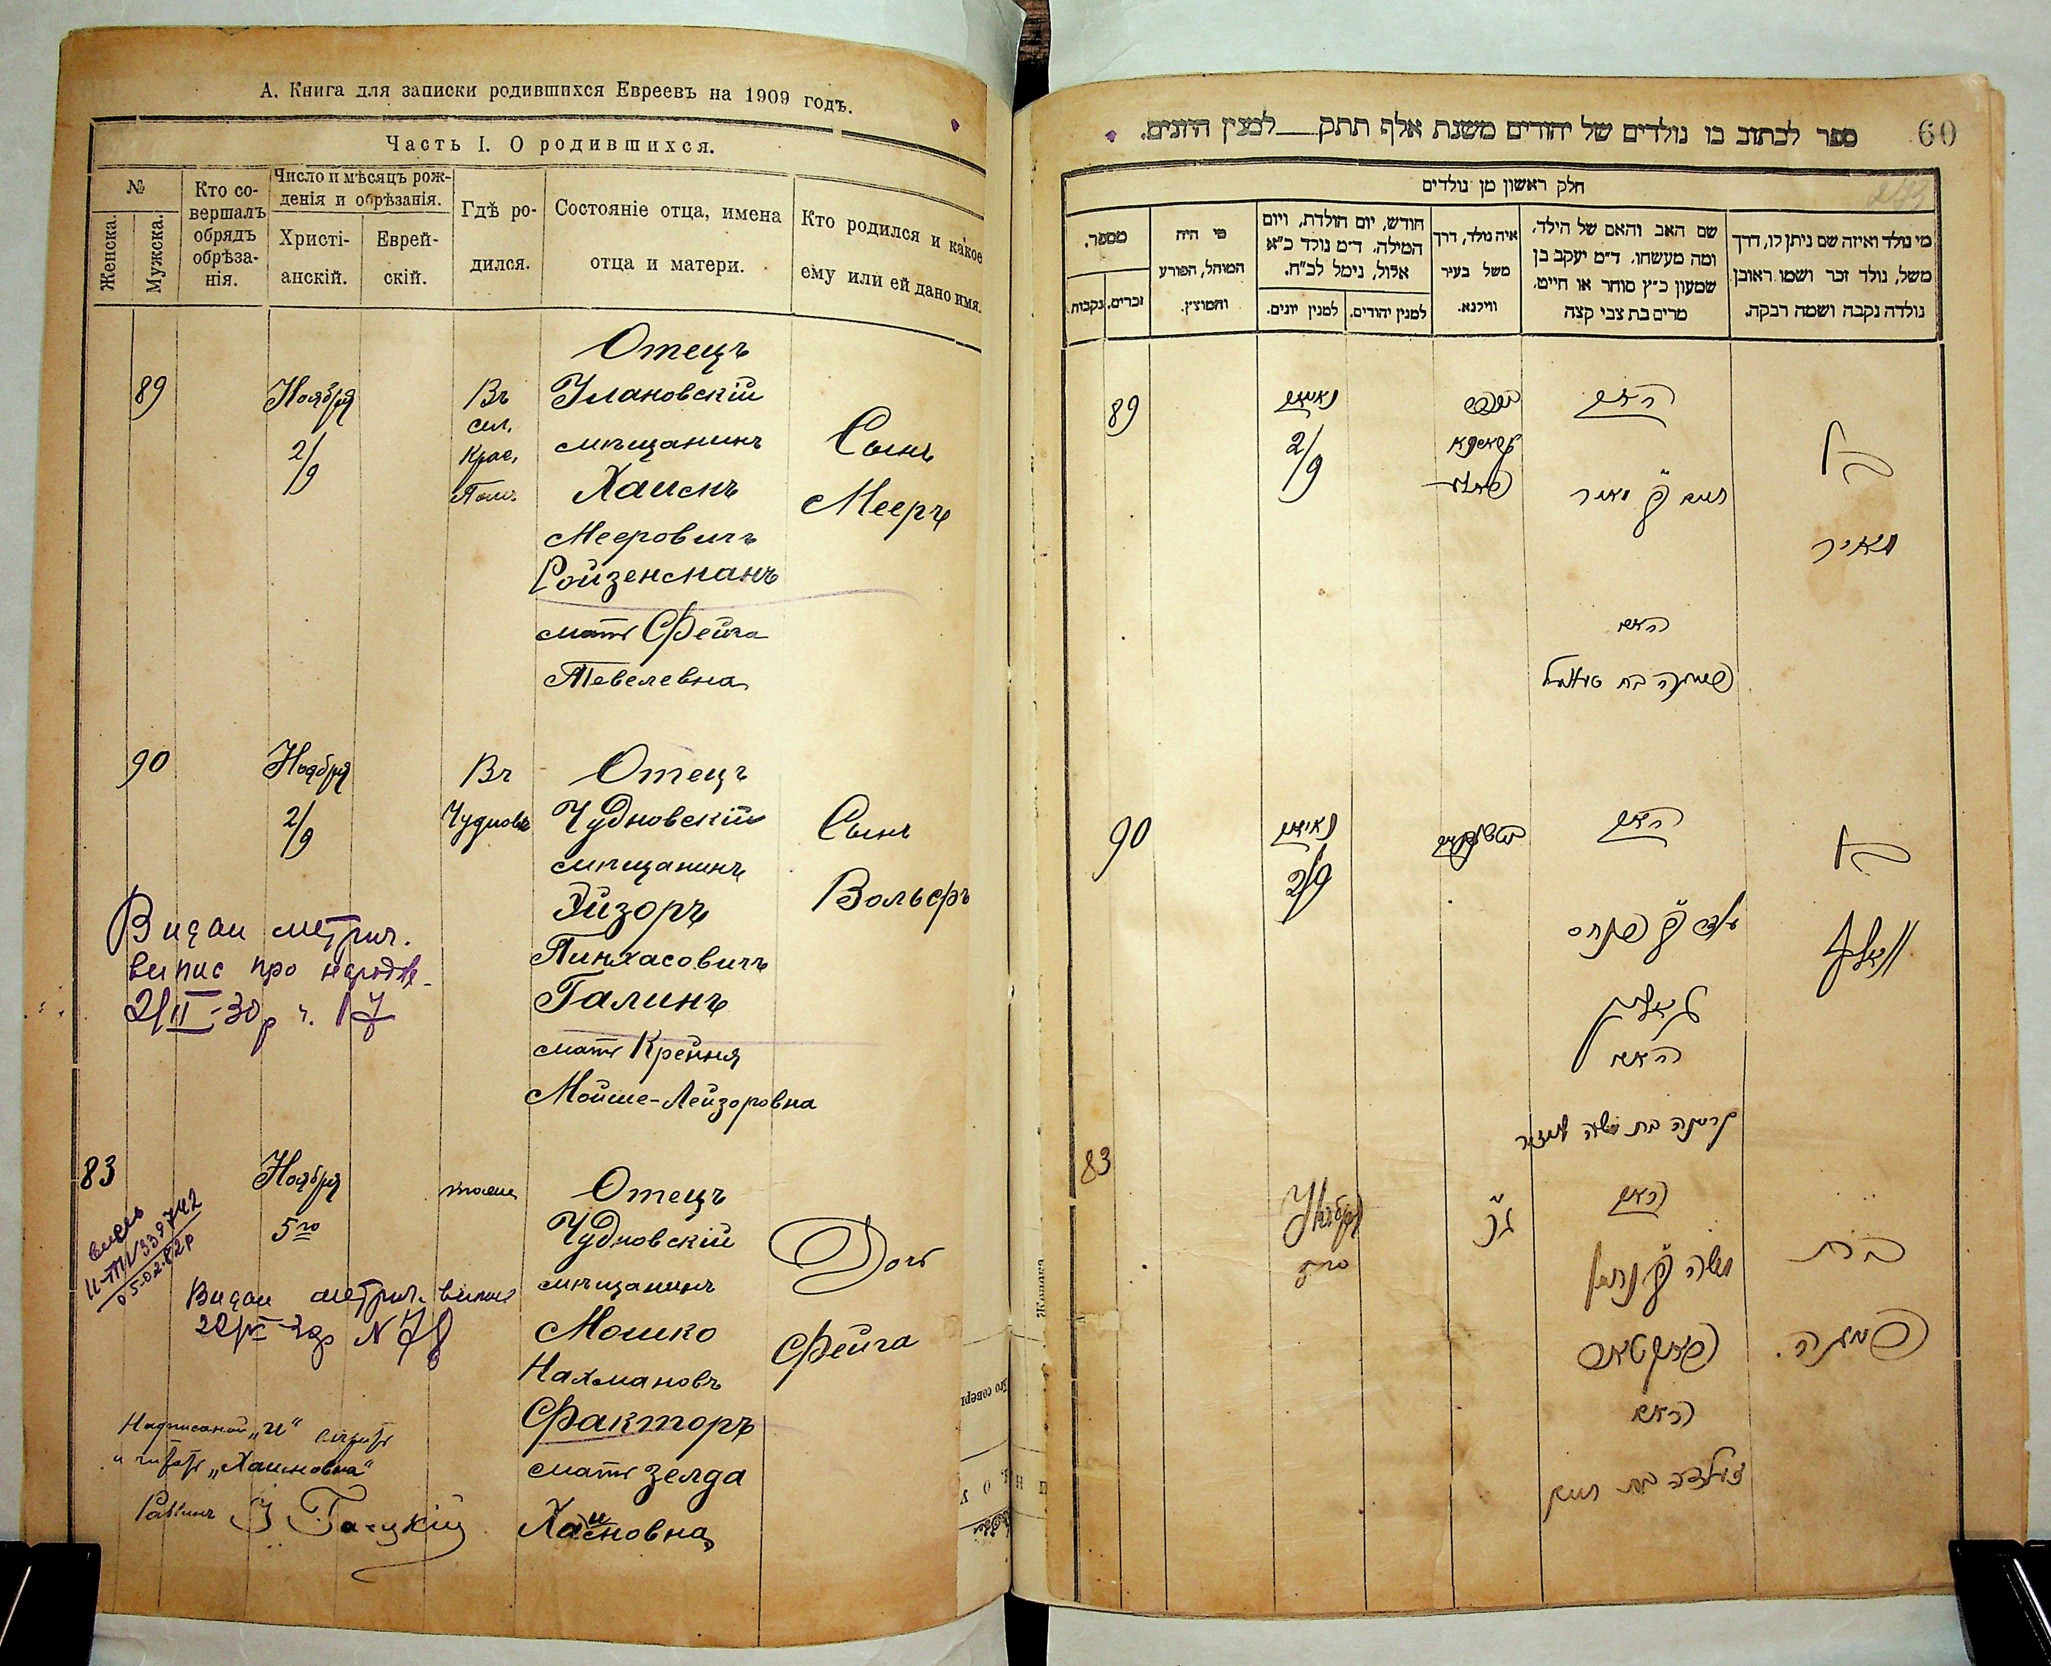 А. Книга для записки родившихся Евреевъ на 1909 годъ.
Часть I. О родившихся.
№
Женска.
Мужска.
Кто со-
вершалъ
обрядъ
обрѣза-
нія.
Число и мѣсяцъ рож-
денія и обрѣзанія.
Христі-
анскій.
Еврей-
скій.
Гдѣ ро-
дился.
Состояніе отца, имена
отца и матери.
Кто родился и какое
ему или ей дано имя.
89
Ноября
2/9
Въ
сел.
Крас.
Отецъ
Улановскій
мѣщанинъ
Хаимъ
Мееровичъ
Ройзенманъ
мать Фейга
Тевелевна
Сынъ
Мееръ
90
Ноября
2/9
Въ
Чудновѣ
Отецъ
Чудновскій
мѣщанинъ
Эйзоръ
Пинхасовичъ
Галинъ
мать Крейня
Мойше-Лейзоровна
Сынъ
Вольфъ
Видан метрич.
випис про народж.
2/II-30р ч. 17
83
Ноября
5го
тоже
Отецъ
Чудновскій
мѣщанинъ
Мошко
Нахмановъ
Факторъ
мать Зелда
Хаимовна
и
Дочь
Фейга
II-ТП № 339742
05.02.82р
Видан метрич. випис
N 78
Надписаной „и“ вѣрить
и читать „Хаимовна“
Раввинъ
60
ספר לכתוב בו נולדים של יהודים משנת אלף תתק__למנין היונים.
חלק ראשון מן נולדים
מי נולד ואיזה שם ניתן לו, דרך
משל, נולד זכר ושמו ראובן
נולדה נקבה ושמה רבקה.
שם האב והאם של הילד,
ומה מעשהו. ד״מ יעקב בן
שמעון כ״ץ סוחר או חייט,
מרים בת צבי קצה
איה נולד, דרך
משל בעיר
ווילנא.
חודש, יום הולדת, ויום
המילה. ד״מ נולד כ״א
אלול, נימל לכ״ח.
למנין יהודים.
למנין יונים.
מי היה
המוהל, הפורע
והמוצץ.
מספר.
זכרים.
נקבות.
89
2/9
האב
חיים ב״ר מאיר
האם
בן
מאיר
90
2/9
האב
האם
קריינה בת משה אליעזר
בן
וואלף
83
Ноября
האב
משה ב״ר נחמן
פאקטאר
האם
זעלדה בת חיים
בת
פייגה.